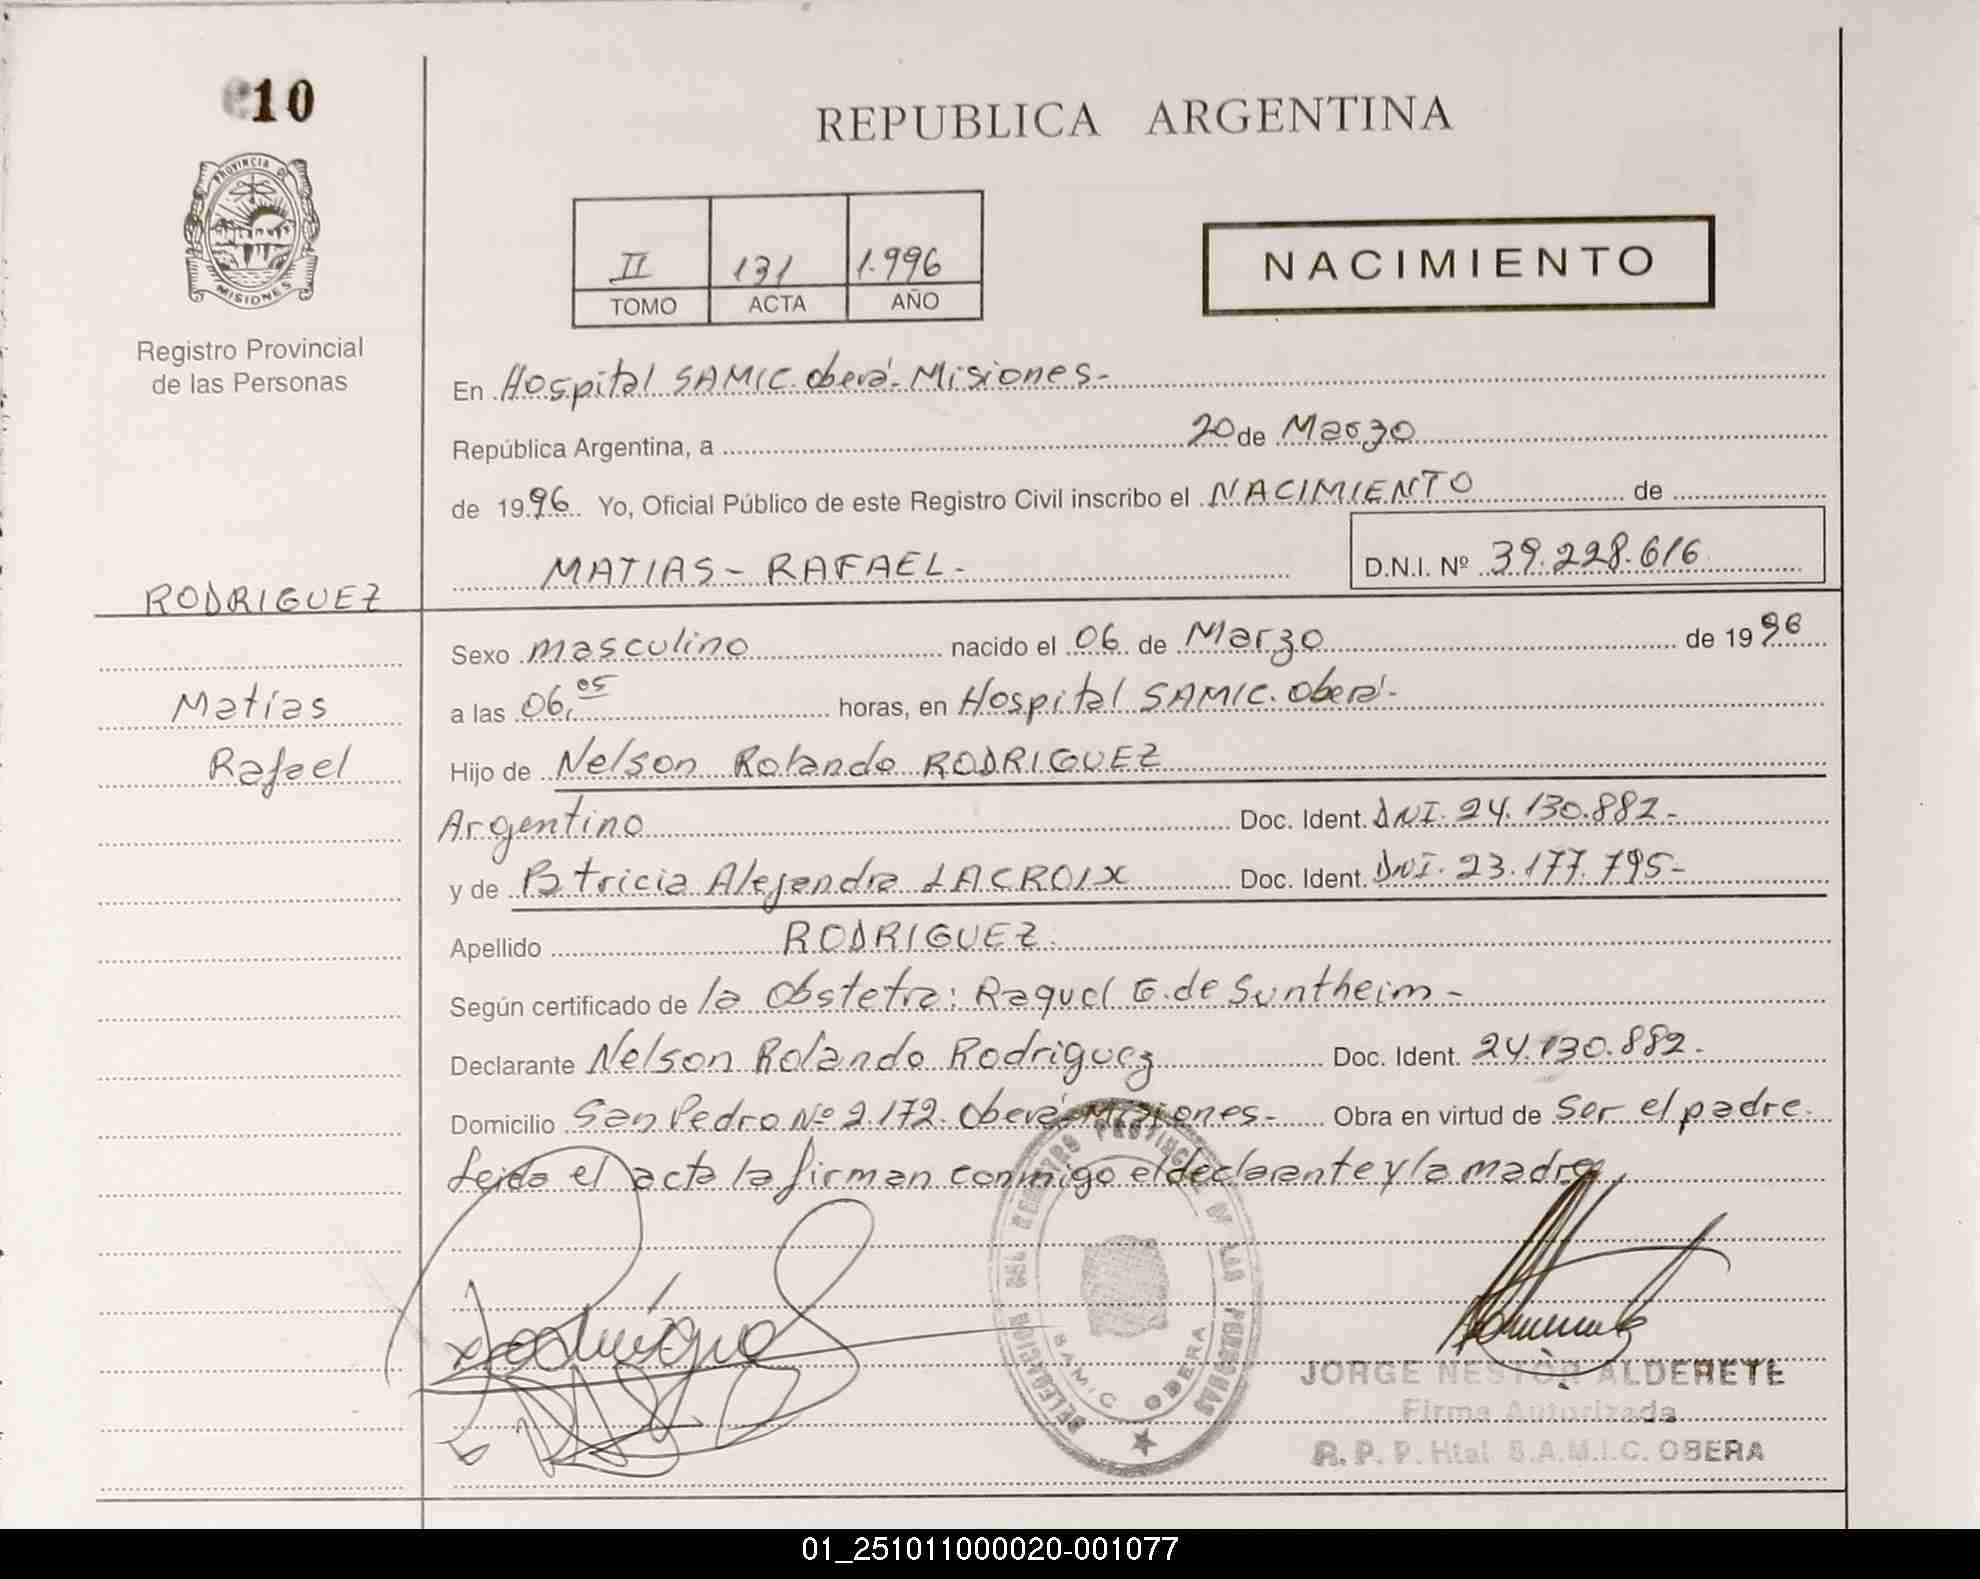 10
REPUBLICA ARGENTINA
PROVINCIA DE
MISIONES
Registro Provincial
de las Personas
II 131 1.996
TOMO ACTA AÑO
NACIMIENTO
En Hospital SAMIC. Oberá - Misiones -
República Argentina, a 20 de Marzo
de 1996. Yo, Oficial Público de este Registro Civil inscribo el NACIMIENTO de
MATIAS - RAFAEL - D.N.I. Nº 39.228.616
RODRIGUEZ
Matías
Rafael
Sexo masculino nacido el 06 de Marzo de 1996
a las 06,05 horas, en Hospital SAMIC. Oberá -
Hijo de Nelson Rolando RODRIGUEZ
Argentino Doc. Ident. DNI. 24.130.882 -
y de Ptricia Alejandra LACROIX Doc. Ident. DNI. 23.177.795 -
Apellido RODRIGUEZ
Según certificado de la Obstetra: Raquel G. de Suntheim -
Declarante Nelson Rolando Rodriguez Doc. Ident. 24.130.882.
Domicilio San Pedro Nº 2.172. Oberá - Misiones - Obra en virtud de Ser el padre.
Leida el acta la firman conmigo el declarante y la madre
DELEGACION DEL REGISTRO PROVINCIAL DE LAS PERSONAS
SAMIC OBERA
JORGE NESTOR ALDERETE
Firma Autorizada
R. P. P. Htal. S.A.M.I.C. OBERA
01_251011000020-001077